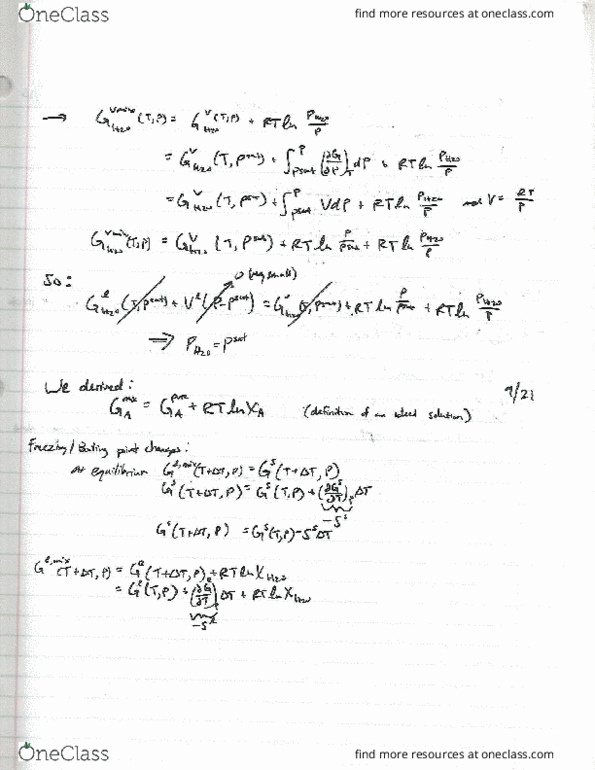 OneClass
find more resources at oneclass.com
→ G_{H2O}^{Vmix}(T,P) = G_{H2O}^{V}(T,P) + RT ln P_{H2O}/P
= G_{H2O}^{V}(T, P^{sat}) + ∫_{P^{sat}}^{P} (∂G/∂P)_T dP + RT ln P_{H2O}/P
= G_{H2O}^{V}(T, P^{sat}) + ∫_{P^{sat}}^{P} V dP + RT ln P_{H2O}/P and V = RT/P
G_{H2O}^{Vmix}(T,P) = G_{H2O}^{V}(T, P^{sat}) + RT ln P/P^{sat} + RT ln P_{H2O}/P
So:
0 (very small)
G_{H2O}^{l}(T, P^{sat}) + V^{l}(P-P^{sat}) = G_{H2O}^{v}(T, P^{sat}) + RT ln P/P^{sat} + RT ln P_{H2O}/P
⇒ P_{H2O} = P^{sat}
9/21
We derived:
G_A^{mix} = G_A^{pure} + RT ln X_A (definition of an ideal solution)
Freezing/Boiling point changes:
At equilibrium G^{l,mix}(T+ΔT,P) = G^{s}(T+ΔT,P)
G^{s}(T+ΔT,P) = G^{s}(T,P) + (∂G^{s}/∂T)_P ΔT
-S^{s}
G^{s}(T+ΔT,P) = G^{s}(T,P) - S^{s}ΔT
G^{l,mix}(T+ΔT,P) = G^{l}(T+ΔT,P) + RT ln X_{H2O}
= G^{l}(T,P) + (∂G/∂T)_P ΔT + RT ln X_{H2O}
-S^{l}
OneClass
find more resources at oneclass.com